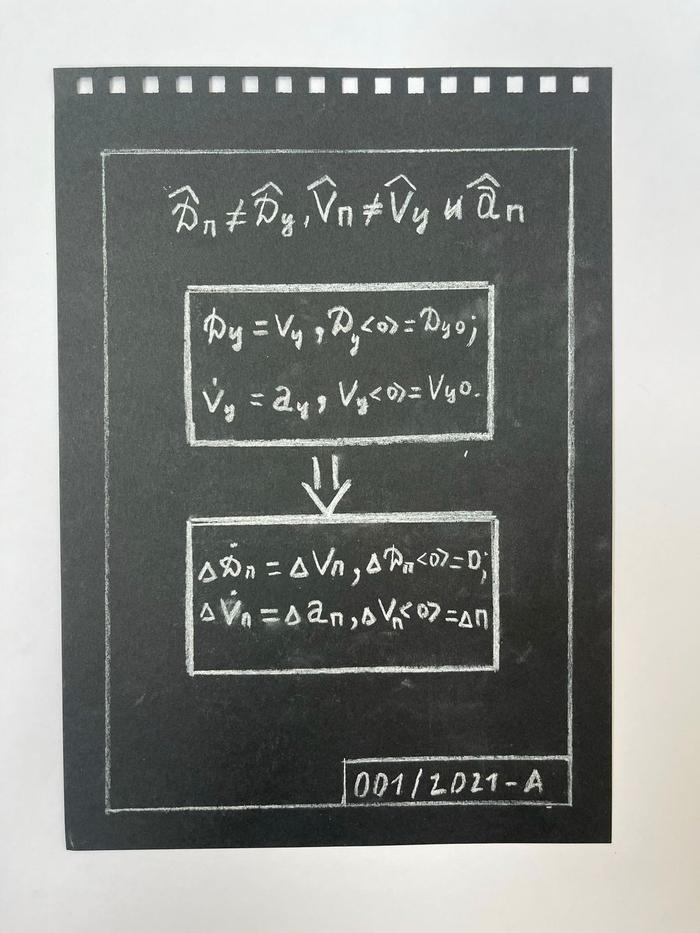 D̂п ≠ D̂у, V̂п ≠ V̂у и âп
Dу = Vу, Dу<0> = Dуо;
V̇у = aу, Vу<0> = Vуо.
ΔḊп = ΔVп, ΔDп<0> = D;
ΔV̇п = Δaп, ΔVп<0> = Δп
001/2021-A